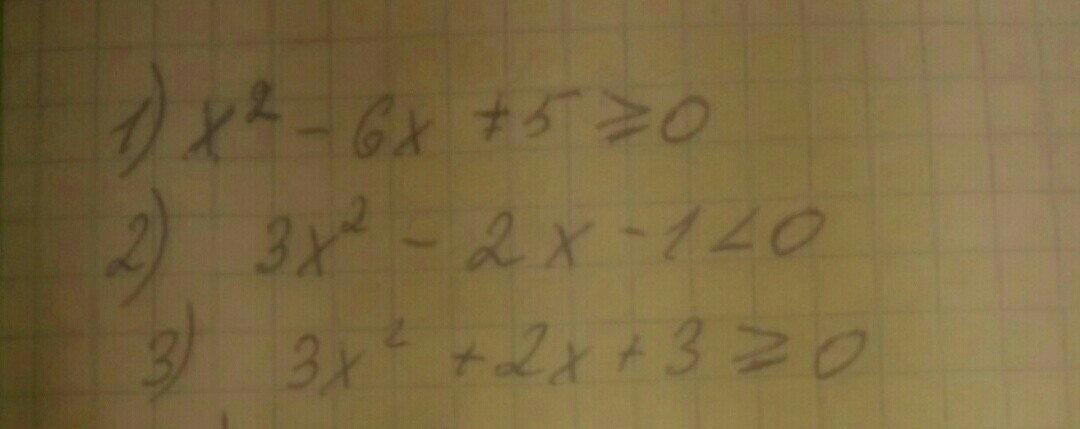 1) x² - 6x + 5 ⩾ 0
2) 3x² - 2x - 1 < 0
3) 3x² + 2x + 3 ⩾ 0